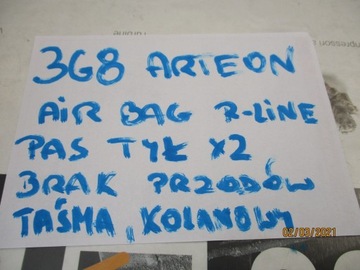 3G8 ARTEON
AIR BAG R-LINE
PAS TYŁ X2
BRAK PRZODÓW
TAŚMA, KOLANOWY
02/09/2021